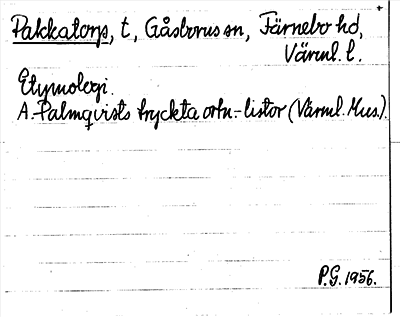 Pakkatorp, t, Gåsborns sn, Färnebo hd,
Värml. l.
Etymologi.
A. Palmqvists tryckta ortn.-listor (Värml. Mus.).
P.G. 1956.